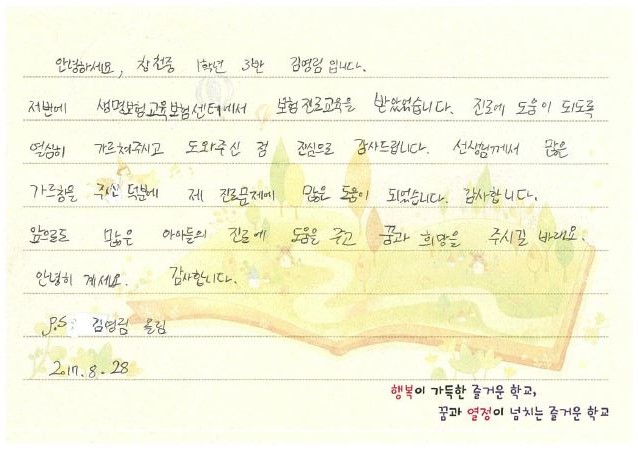 안녕하세요, 참천중 1학년 3반 김영림입니다.
저번에 생명보험교육보험센터에서 보험진로교육을 받았었습니다. 진로에 도움이 되도록
열심히 가르쳐주시고 도와주신 점 진심으로 감사드립니다. 선생님께서 많은
가르침을 주신 덕분에 제 진로문제에 많은 도움이 되었습니다. 감사합니다.
앞으로도 많은 아이들의 진로에 도움을 주고 꿈과 희망을 주시길 바래요.
안녕히 계세요. 감사합니다.
P.S : 김영림 올림
2017. 8. 28
행복이 가득한 즐거운 학교,
꿈과 열정이 넘치는 즐거운 학교